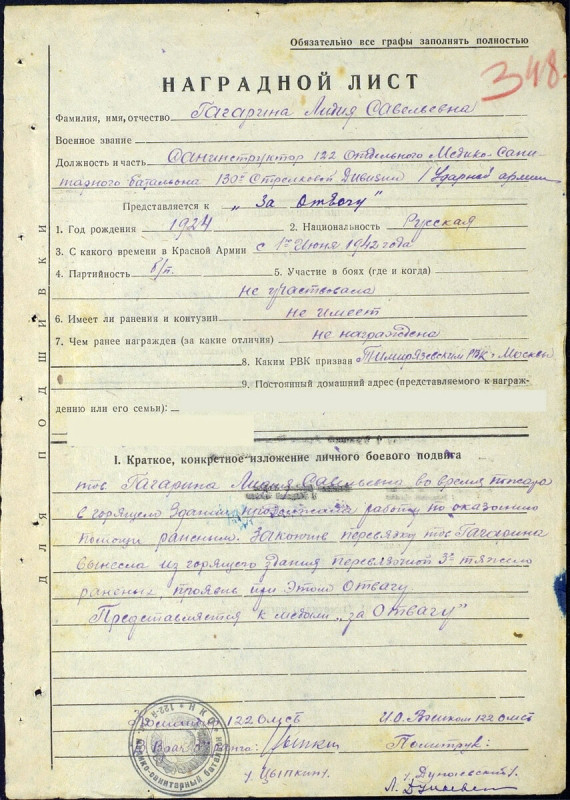 Обязательно все графы заполнять полностью
348.
НАГРАДНОЙ ЛИСТ
Фамилия, имя, отчество Гагарина Лидия Савельевна
Военное звание
Должность и часть Санинструктор 122 Отдельного Медико-Сани-
тарного батальона 130й Стрелковой Дивизии 1 Ударной армии
Представляется к "За Отвагу"
1. Год рождения 1924 2. Национальность Русская
3. С какого времени в Красной Армии с 1го Июня 1942 года
4. Партийность б/п. 5. Участие в боях (где и когда)
не участвовала
6. Имеет ли ранения и контузии не имеет
7. Чем ранее награжден (за какие отличия) не награждена
8. Каким РВК призван Тимирязевским РВК г. Москвы
9. Постоянный домашний адрес (представляемого к награж-
дению или его семьи):
I. Краткое, конкретное изложение личного боевого подвига
тов. Гагарина Лидия Савельевна во время пожара
в горящем здании продолжала работу по оказанию
помощи раненым. Закончив перевязку тов. Гагарина
вынесла из горящего здания перевязочной 3х тяжело
раненых, проявив при этом Отвагу
Представляется к медали "за Отвагу"
122 ОМСБ И.О. Военком 122 омсб
Политрук:
/Цыпкин/ /Дунаевский/
ДЛЯ ПОДШИВКИ